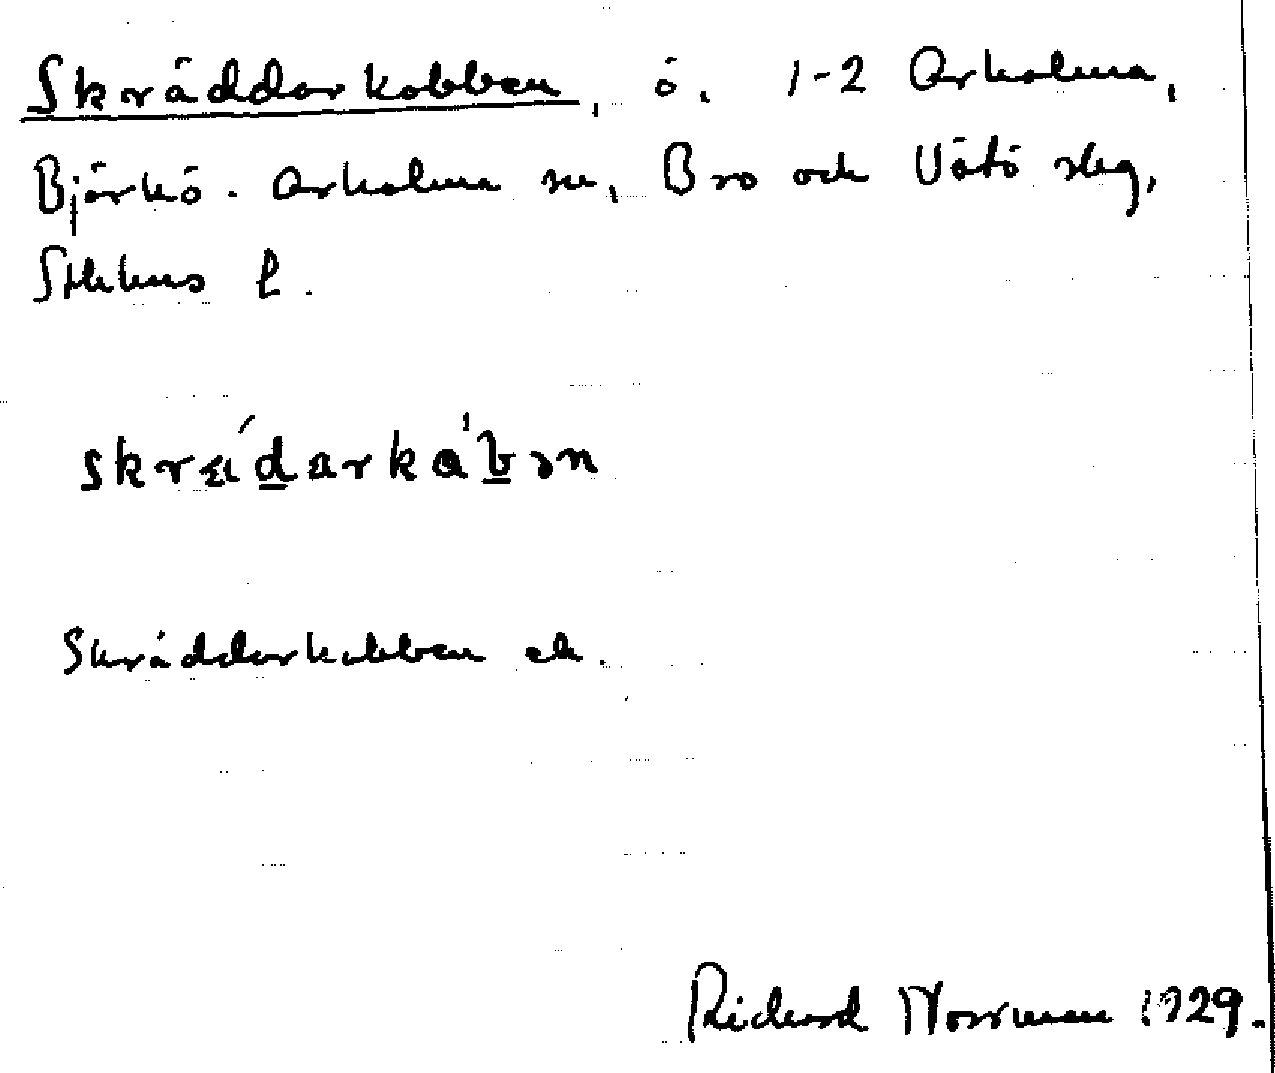 Skräddarkobben, ö. 1-2 Arholma,
Björkö-Arholma sn, Bro och Vätö slg,
Sthlms l.
skrǽdarkàbən
Skräddarkobben ek.
Richard Norrman 1929.